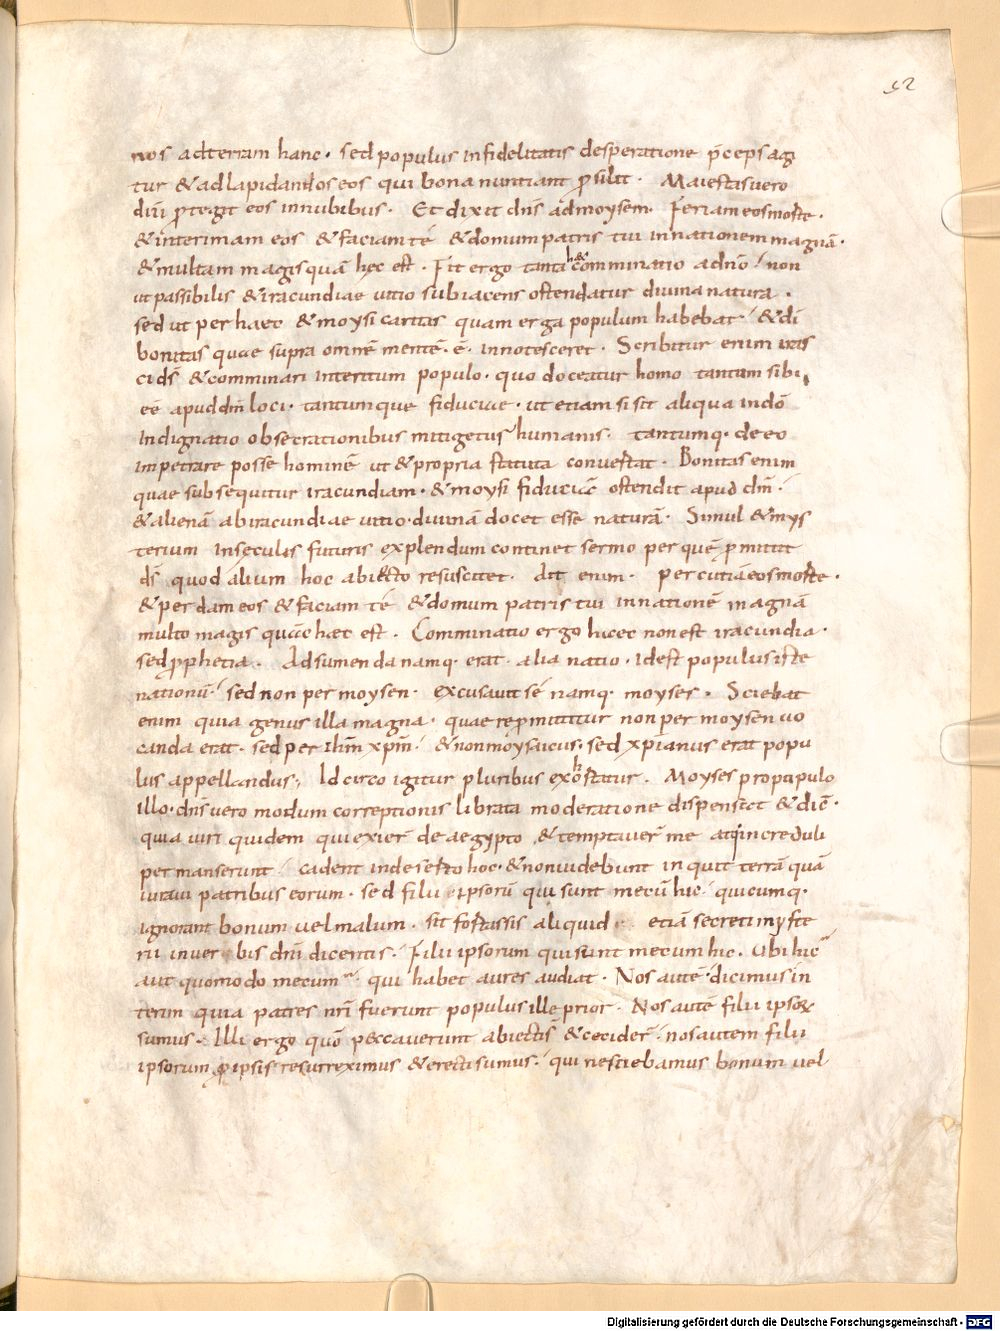 52
nos adterram hanc · sed populus infidelitatis desperatione p̄ceps agi
tur & ad lapidandos eos qui bona nuntiant ꝓsilit · Maiestas uero
diūi ꝓtegit eos innubibus · Et dixit dn̄s ad moysem · Feriam eos morte ·
& interimam eos & faciam té & domum patris tui in nationem magnā ·
& multam magis quā hęc est · Fit ergo tanta hęc comminatio adnō / non
ut passibilis & iracundiae uitio subiacens ostendatur diuina natura ·
sed ut per haec & moysi caritas quam erga populum habebat / & dī
bonitas quae supra omnē mentē · ē · innotesceret · Scribitur enim iras
ci dš & comminari interitum populo · quo doceatur homo tantum sibi
eē apud dm̄ loci · tantumque fiduciae · ut etiam si sit aliqua in dō
indignatio obsecrationibus mitigetur humanis · tantumq· de eo
impetrare posse hominē ut & propria statuta conuertat · Bonitas enim
quae subsequitur iracundiam · & moysi fiduciā ostendit apud dm̄ ·
& alienā ab iracundiae uitio · diuinā docet esse naturā · Simul & mys
terium in sęculis futuris explendum continet sermo per quē ꝓmittit
dš quod alium hoc abiecto resuscitet · Ait enim · percutiā eos morte ·
& perdam eos & faciam té & domum patris tui in nationē magnā
multo magis quā hæc est · Comminatio ergo haec non est iracundia ·
sed ꝓphetia · Adsumenda namq· erat alia natio · idest populus iste
nationū / sed non per moysen · excusauit sé namq· moyses · Sciebat
enim quia genus illa magna · quae repmittitur non per moysen uo
canda erat · sed per ihm̄ xpm̄ / & non moysaicus · sed xp̄ianus erat popu
lus appellandus; Idcirco igitur pluribus exhortatur · Moyses pro populo
illo · dn̄s uero modum correptionis librata moderatione dispenset & diē ·
quia uiri quidem qui exier̄ de aegypto & temptauer̄ me atq· increduli
permanserunt / cadent in deserto hoc · & non uidebunt inquit terrā quā
iuraui patribus eorum · sed filii ipsorū qui sunt mecū hic / quicumq·
ignorant bonum uel malum · sit fortassis aliquid etiā secreti myste
rii in uerbis dn̄i dicentis / Filii ipsorum qui sunt mecum hic · Ubi hic
aut quomodo mecum / qui habet aures audiat · Nos autē dicimus in
terim quia patres nr̄i fuerunt populus ille prior · Nos autē filii ipsoꝝ
sumus · Illi ergo quō peccauerunt abiectis & cecider̄ / nos autem filii
ipsorum ꝓ ipsis resurreximus & erecti sumus / qui nesciebamus bonum uel
Digitalisierung gefördert durch die Deutsche Forschungsgemeinschaft - DFG